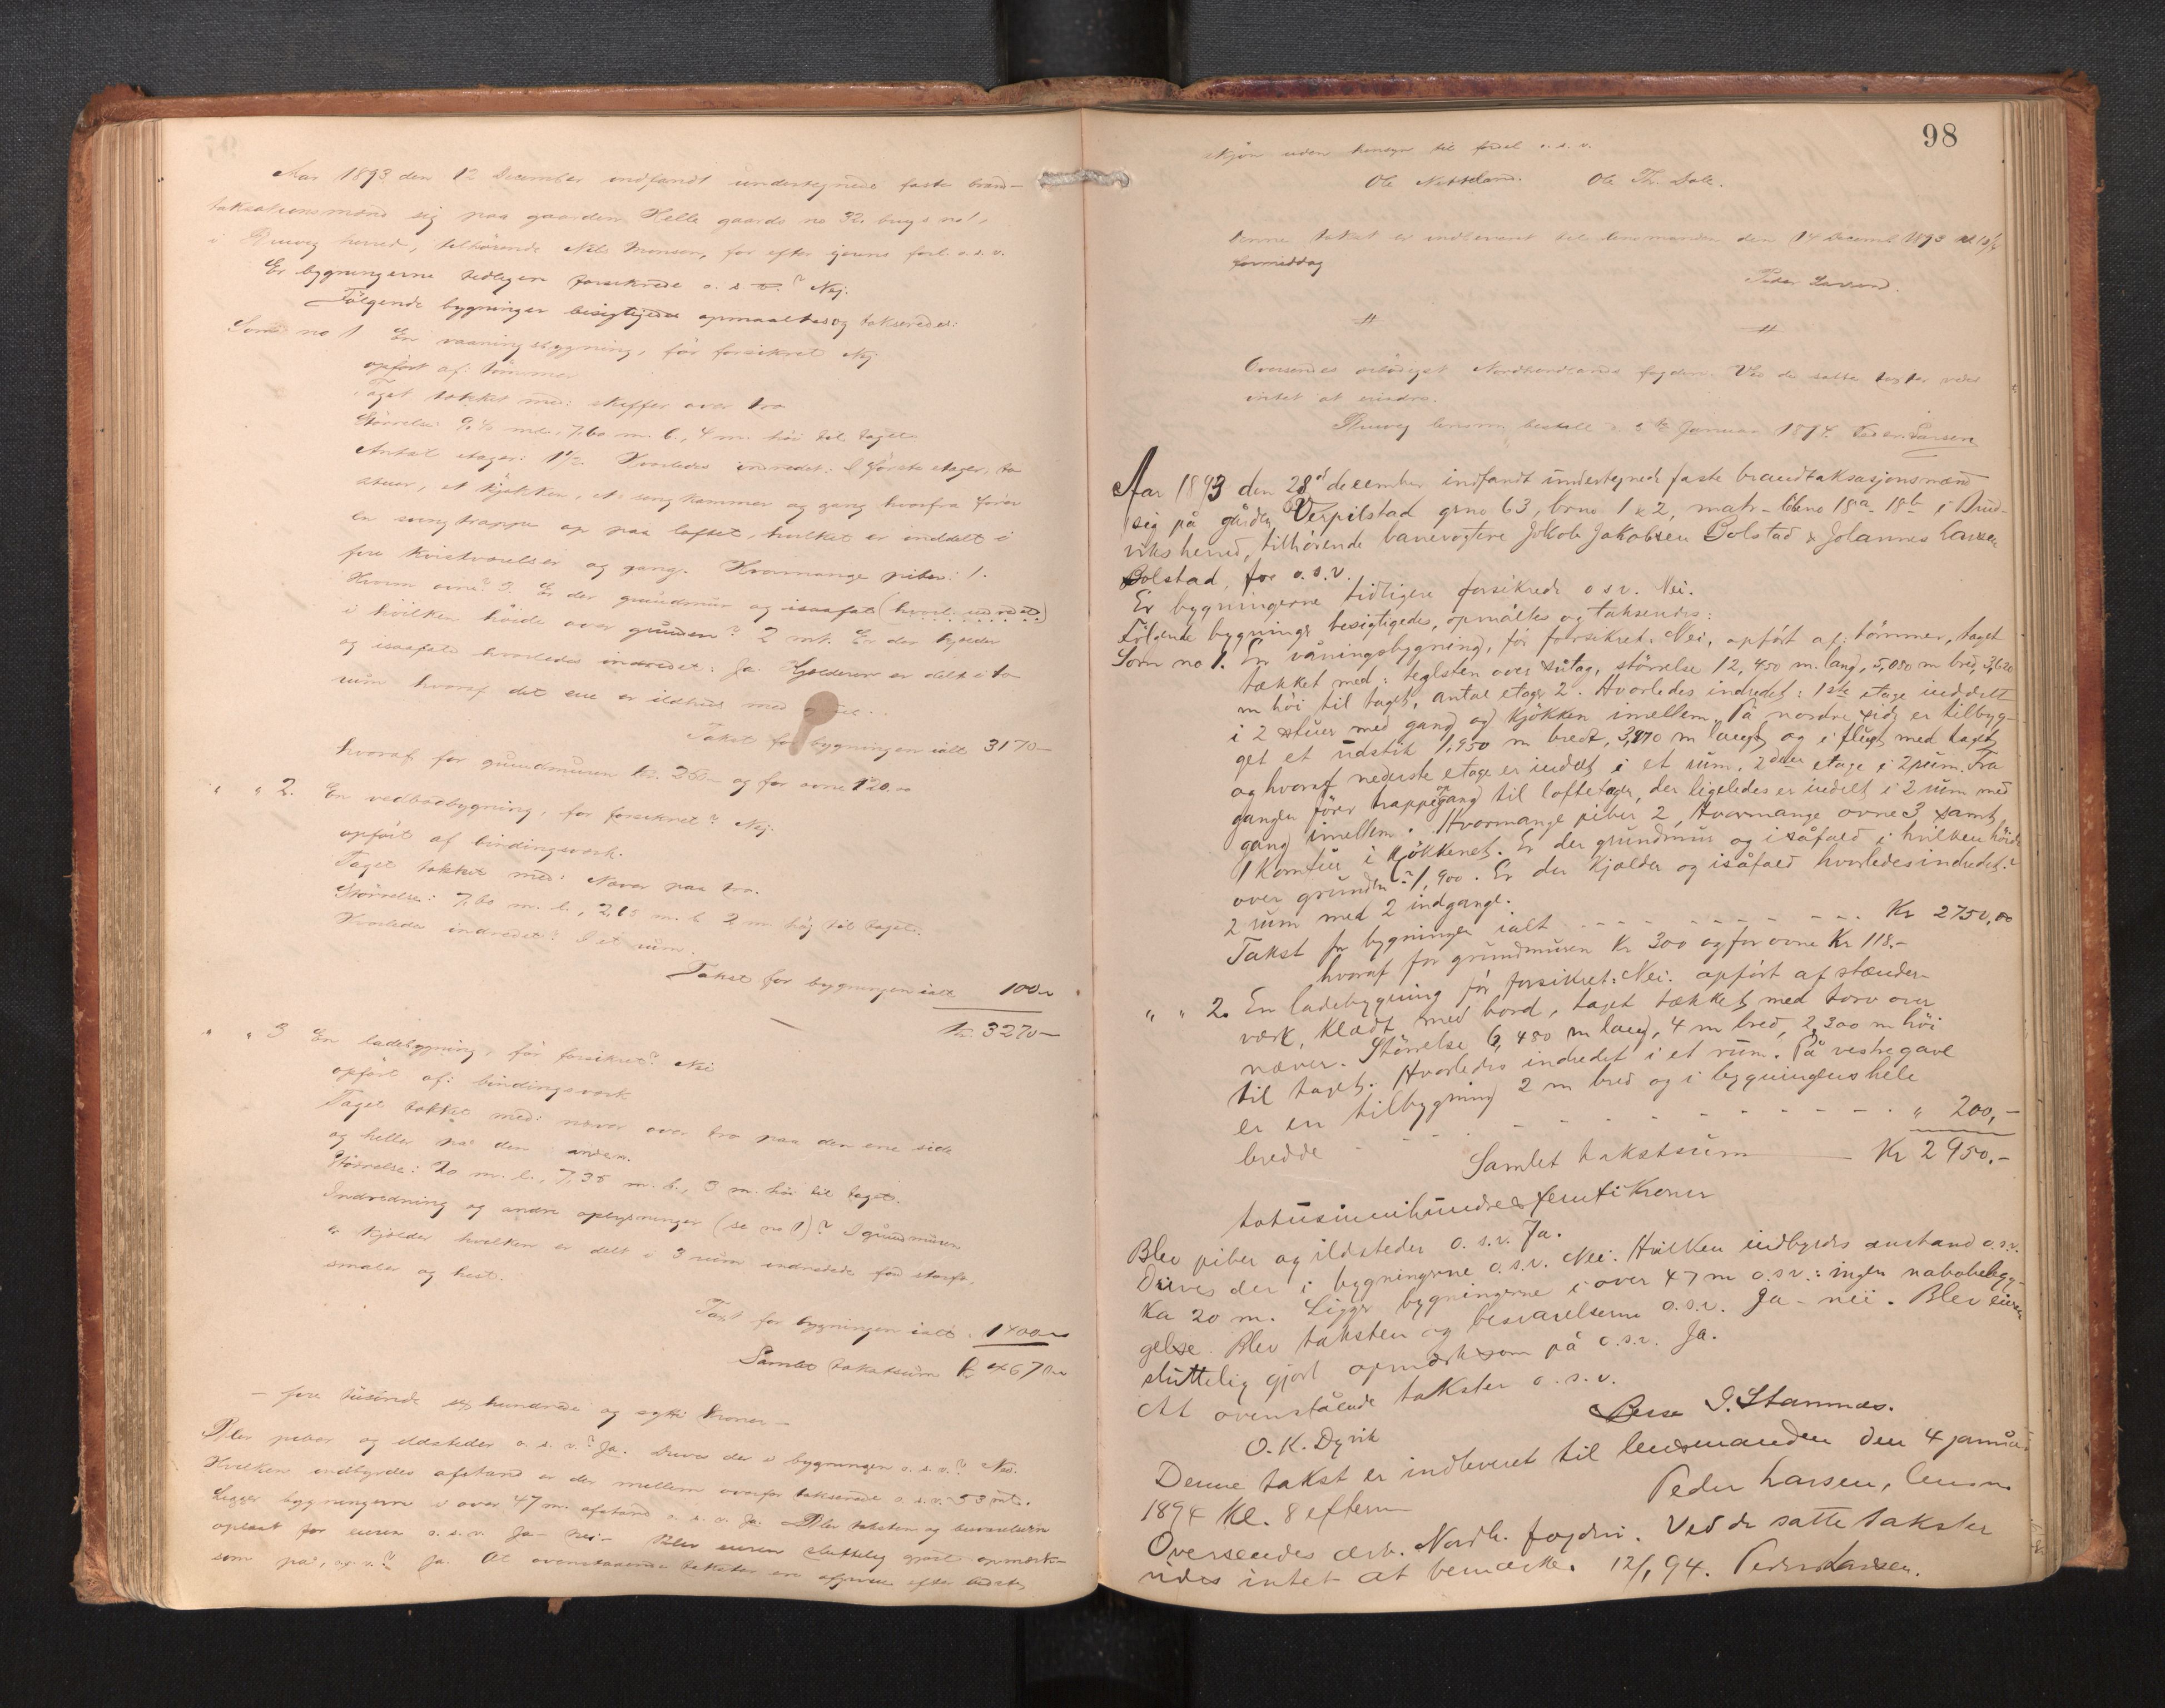 Aar 1893 den 12 December indfandt undertegnede faste brand-
taksationsmænd sig paa gaarden Helle gaards no 32. brugs no 1,
i Bruvig herred, tilhørende Nils Monsen, for efter igjenns forl. o. s. v.
Er bygningerne tidligere forsikrede o. s. v.? Nej.
Følgende bygninger besigtigedes opmaaltes og takseredes:
Som no 1 En vaaningsbygning, før forsikret Nej
opført af: tømmer
Taget tækket med: skiffer over tro
Størrelse: 9,40 m l., 7,60 m. b., 4 m. høi til taget.
Antal etager: 1½. Hvorledes indredet: I første etager, to
stuer, et kjøkken, et sengkammer og gang hvorfra fører
en svingtrappe op paa loftet, hvilket er inddelt i
fire kvistværelser og gang. Hvormange piber: 1.
Hvorm. ovne? 3. Er der grundmur og isaafat (hvorl. indredet)
i hvilken høide over grunden? 2 mt. Er der kjælder
og isaafald hvorledes indredet: Ja. Kjælderen er delt i to
rum hvoraf det ene er ildhus med
Takst for bygningen ialt 3170 –
hvoraf for grundmuren kr. og for ovne 120.00
" " 2. En vedbodbygning, før forsikret? Nej.
opført af bindingsværk.
Taget tækket med: Næver paa tro.
Størrelse: 7,60 m. l., 2,65 m. b. 2 m. høj til taget.
Hvorledes indredet? I et rum.
Takst for bygningen ialt 100 –
Kr. 3270 –
" " 3 En ladebygning, før forsikret? Nei
opført af: bindingsværk
Taget tækket med: næver over tro paa den ene side
og heller på den anden.
Størrelse: 20 m. l., 7,35 m. b., 3 m. høi til taget.
Indredning og andre oplysninger (se no 1)? I grundmuren
er kjælder hvilken er delt i 3 rum indredede for storfæ,
smaler og hest.
Taxt for bygningen ialt. 1400 –
Samlet takstsum kr 4670 –
– fire tusinde sex hundrede og sytti kroner –
Blev piber og ildsteder o. s. v.? Ja. Drives der i bygningen o. s. v.? Nei.
Hvilken indbyrdes afstand er der mellem ovenfor takserede o. s. v. 53 mt.
Ligger bygningerne i over 47 m. afstand o. s. v. Ja. Blev taksten og besvarelsen
oplæst for eieren o. s. v. Ja – nei – Blev eieren sluttelig gjort opmærk-
som på, o. s. v.? Ja. At ovenstaaende takster ere afgivne efter bedste
98
skjøn uden hensyn til fordel o. s. v.
Ole Netteland. Ole Th. Dale.
Denne takst er indleveret til lensmanden den 14 Decemb 1893 kl 10½
formiddag
Peder Larsen.
# #
Oversendes ærbødigst Nordhordlands fogderi. Ved de satte taxter vides
intet at erindre.
Bruvig lensm. bestill Januar 1894. Peder Larsen
Aar 1893 den 28d december indfandt undertegnede faste brandtaksasjonsmænd
sig på gården Verpilstad grno 63, brno 1 & 2, matr-löbeno 18a 18b i Brud-
viks herred, tilhörende banevogtere Jakob Jakobsen Bolstad & Johannes Larsen
Bolstad, for o.s.v.
Er bygningerne tidligere forsikrede o s v. Nei.
Følgende bygninger besigtigedes, opmåltes og taksendes:
Som no 1. En våningsbygning, för forsikret: Nei, opfört af: tömmer, taget
tækket med: teglsten over sutag, störrelse 12,450 m. lang, 5,080 m bred, 3,620
m höi til taget, antal etager 2. Hvorledes indredet: 1ste etage inddelt
i 2 stuer med gang og kjökken imellem. På nordre side er tilbyg-
get et udstik 1,950 m bredt, 3,470 m langt og i flugt med taget,
og hvoraf nederste etage er inddelt i et rum. 2den etage i 2 rum. Fra
gangen förer trappegang op til loftetager, der ligeledes er indelt i 2 rum med
gang imellem. Hvormange piber 2, Hvormange ovne 3 samt
1 Komfur i Kjökkenet. Er der grundmur og i såfald i hvilken höide
over grunden? 1,900. Er der Kjælder og isåfald hvorledes indredet?
2 rum med 2 indgange.
Takst for bygningen ialt - - - - - - Kr 2750,00
hvoraf for grundmuren kr 300 og for ovne Kr 118.–
" " 2. En ladebygning för forsikret: Nei. opfört af stænder-
værk, Klædt med bord, taget tækket med torv over
næver. Störrelse 6,480 m lang, 4 m bred, 2,300 m höi
til taget. Hvorledes indredet i et rum. På vestre gavl
er en tilbygning 2 m bred og i bygningens hele
bredde - - - - - - - " 200,–
Samlet takstsum – Kr 2950.–
totusinnihundredefemti Kroner
Blev piber og ildsteder o. s. v. Ja.
Drives der i bygningerne o. s. v. Nei. Hvilken indbyrdes anstand o. s. v.
Ka 20 m. Ligger bygningerne i over 47 m o. s v.: ingen nabobebyg-
gelse. Blev taksten og besvarelserne o. s. v. Ja – nei. Blev eieren
sluttelig gjort opmærksom på o. s. v. Ja.
At ovenstående takster o. s. v.
O. K. Dyvik Besse J. Stamnæs.
Denne takst er indleveret til lensmanden den 4 januar
1894 Kl. 8 efterm Peder Larsen, lensm.
Oversendes ærb. Nordh. fogderi. Ved de satte takster
vides intet at bemærke. 12/1 94. Peder Larsen.